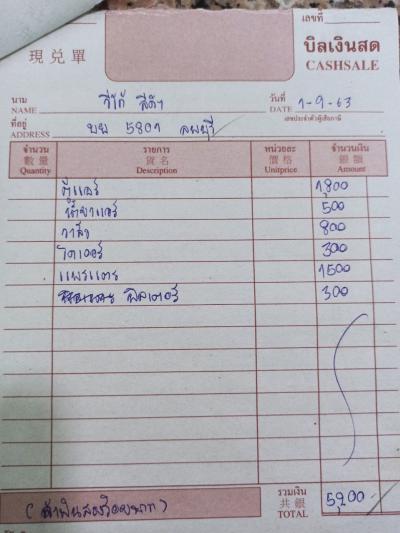 เลขที่
現兌單
บิลเงินสด
CASHSALE
นาม NAME วีโก้ สีดำ วันที่ DATE 1-9-63
เลขประจำตัวผู้เสียภาษี
ที่อยู่ ADDRESS บบ 5801 ลพบุรี
จำนวน รายการ หน่วยละ จำนวนเงิน
數量 貨名 價格 銀額
Quantity Description Unitprice Amount
ตู้แอร์ 1,800
น้ำยาแอร์ 500
วาล์ว 800
ไดเออร์ 300
แผงแตร 1500
ฟิลเตอร์ 300
รวมเงิน
共銀
TOTAL 5,200